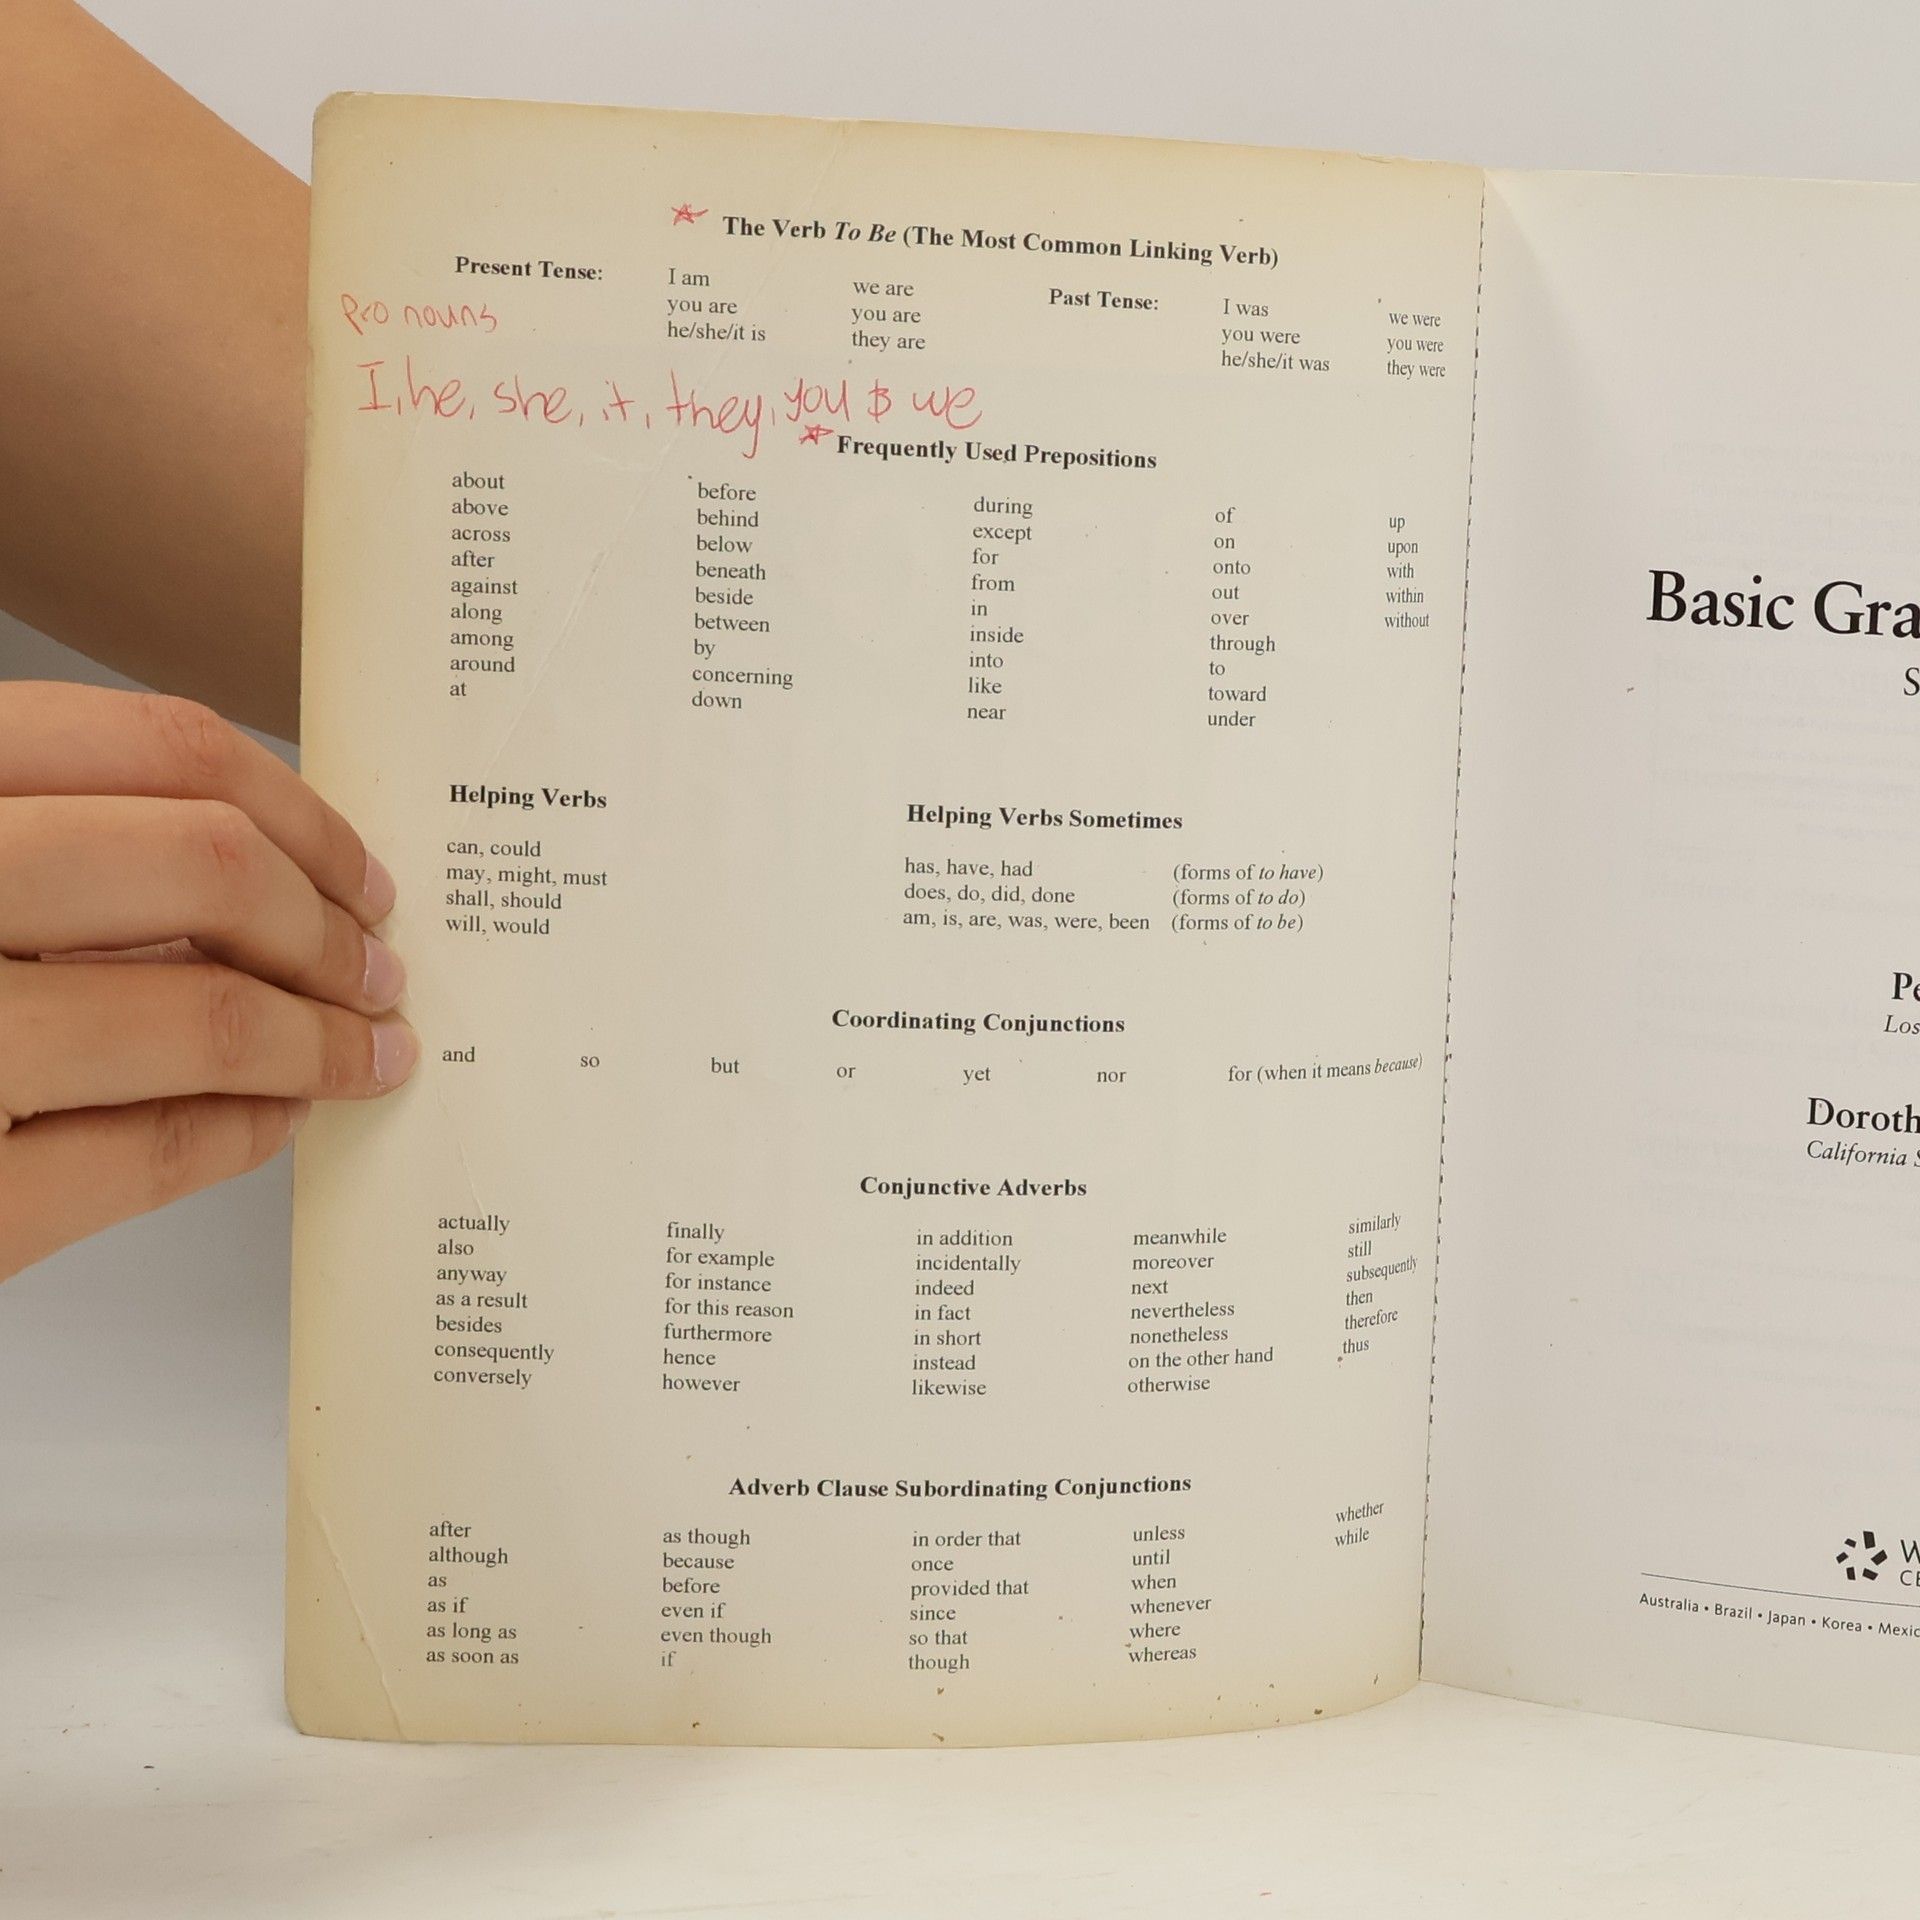 The Verb To Be (The Most Common Linking Verb)
Present Tense: I am we are Past Tense: I was we were
you are you are you were you were
he/she/it is they are he/she/it was they were
Pro nouns
I, he, she, it, they, you & we
Frequently Used Prepositions
about before during of up
above behind except on upon
across below for onto with
after beneath from out within
against beside in over without
along between inside through
among by into to
around concerning like toward
at down near under
Helping Verbs Helping Verbs Sometimes
can, could has, have, had (forms of to have)
may, might, must does, do, did, done (forms of to do)
shall, should am, is, are, was, were, been (forms of to be)
will, would
Coordinating Conjunctions
and so but or yet nor for (when it means because)
Conjunctive Adverbs
actually finally in addition meanwhile similarly
also for example incidentally moreover still
anyway for instance indeed next subsequently
as a result for this reason in fact nevertheless then
besides furthermore in short nonetheless therefore
consequently hence instead on the other hand thus
conversely however likewise otherwise
Adverb Clause Subordinating Conjunctions
after as though in order that unless whether
although because once until while
as before provided that when
as if even if since whenever
as long as even though so that where
as soon as if though whereas
Basic Gra
S
Pe
Los
Doroth
California S
W
CE
Australia • Brazil • Japan • Korea • Mexic